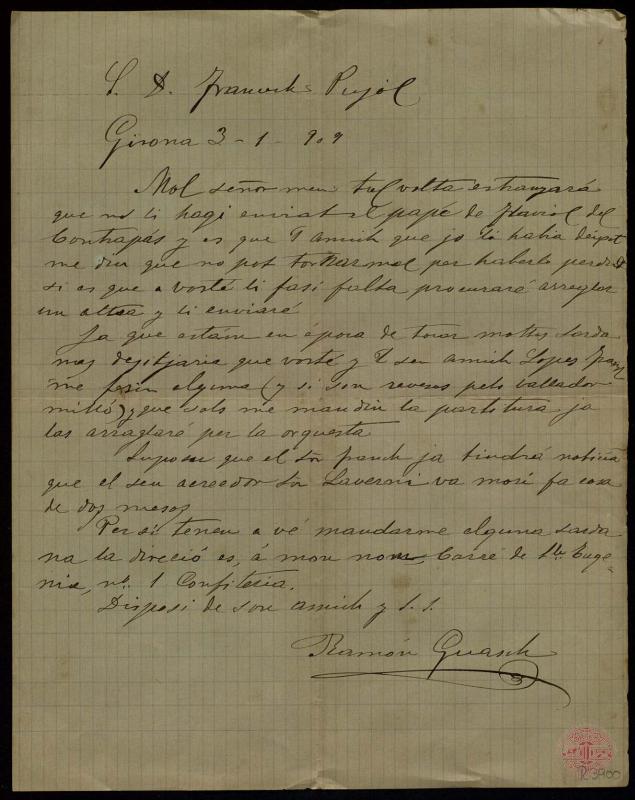 S. D. Francesch Pujol
Girona 3 - 1 - 909
Mol señor meu tal volta estranyará
que no li hagi enviat el papé de flaviol del
Contrapás y es que l amich que jo li habia deixat
me diu que no pot tornarmel per haberlo perdut
si es que a vosté li fasi falta procuraré arreglar
un altra y li enviaré
Ja que estám en época de tocar moltas sarda
nas desitjaria que vosté y l seu amich Lopes Franch
me fesin alguna (y si son revesos pels balladors
milló) y que sols me mandin la partitura ja
las arraglaré per la orquesta
Suposu que el Sr Franch ja tindrá noticia
que el seu acreedor Sr Laverni va morí fa cosa
de dos mesos
Per si tenen a vé mandarme alguna sarda
na la direció es, á mon nom, Carré de Sta Euge-
nia, nº 1 Confiteria.
Disposi de son amich y S. S.
Ramón Guasch
R. 3900